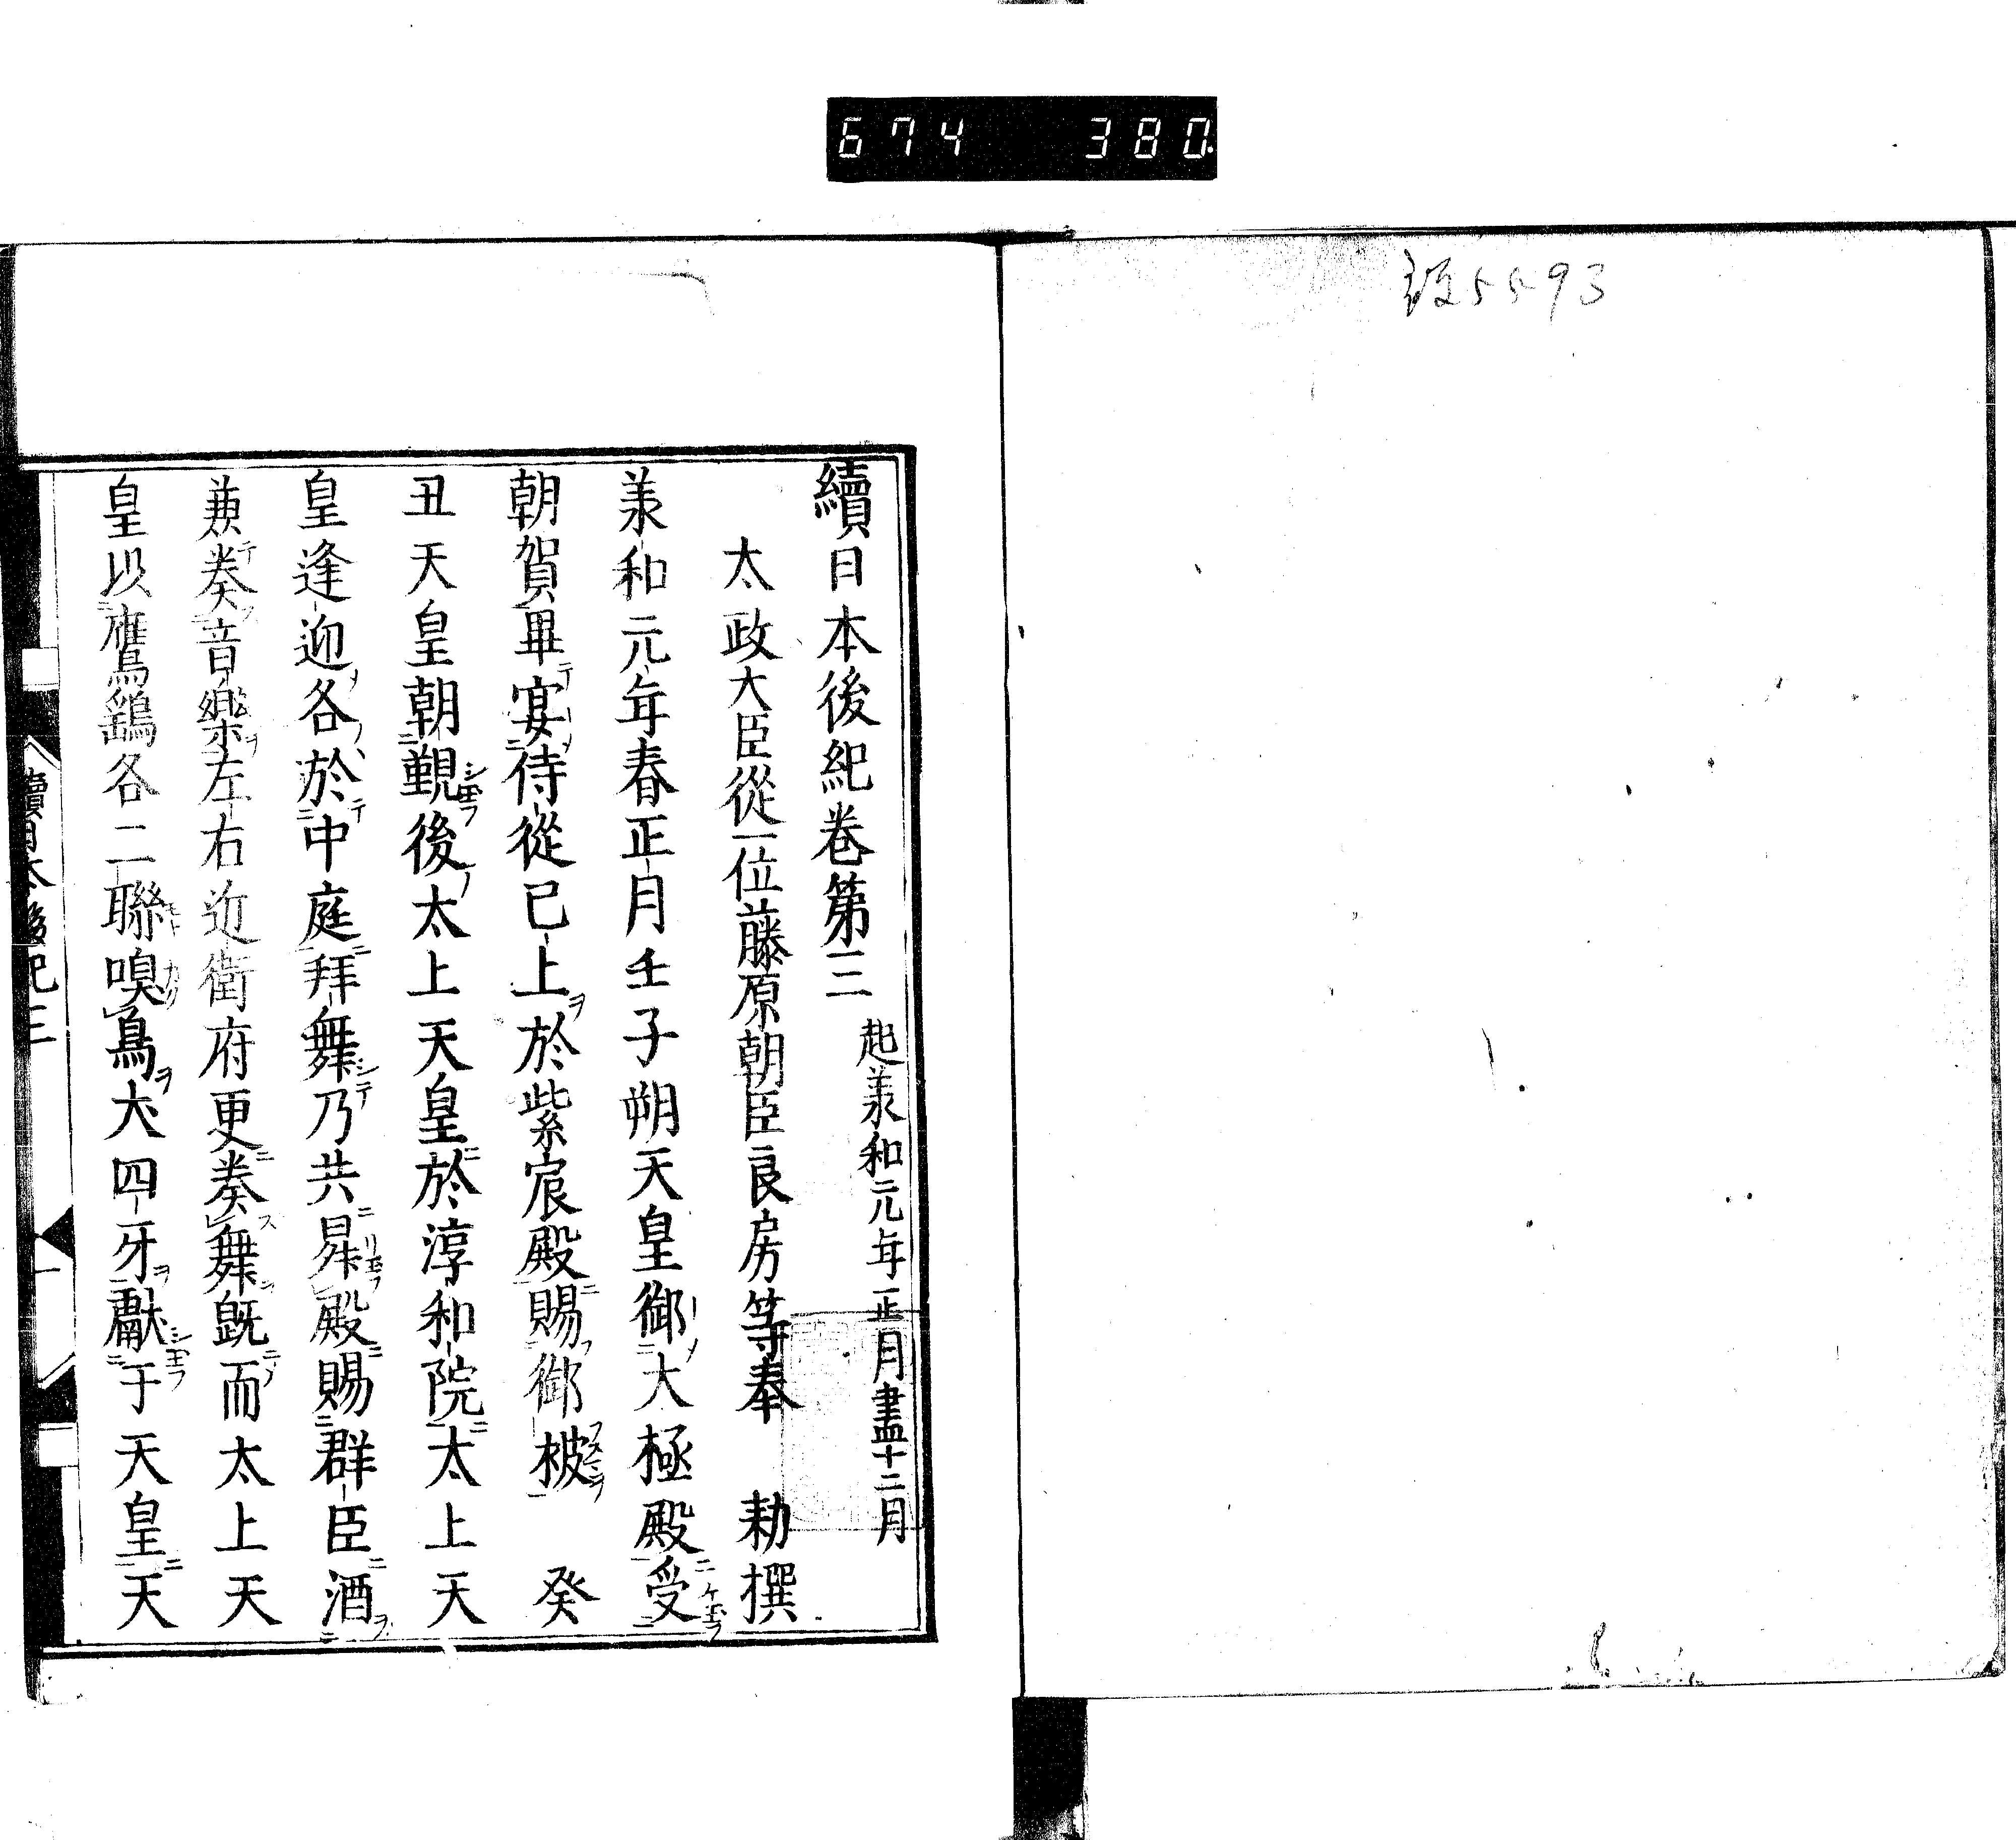 674 380
5593
續日本後紀卷第三 起承和元年正月盡十二月
太政大臣從一位藤原朝臣良房等奉 勅撰
承和元年春正月壬子朔天皇御大極殿受
朝賀畢宴侍從已上於紫宸殿賜御被 癸
丑天皇朝覲後太上天皇於淳和院太上天
皇逢迎各於中庭拜舞乃共昇殿賜群臣酒
兼奏音樂左右近衛府更奏舞既而太上天
皇以鷹鷂各二聯嗅鳥犬四牙獻于天皇天
續日本後紀三 一